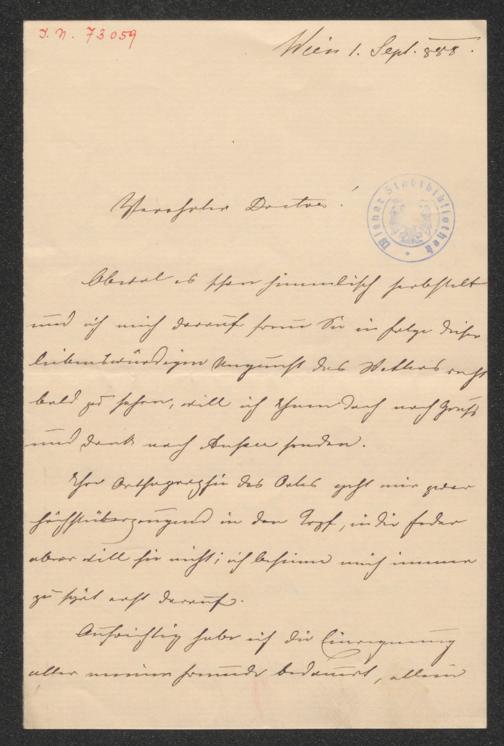 I. N. 73059
Wien 1. Sept. 888.
Wiener Stadtbibliothek
Verehrter Doctor!
Obwol es schon himmlisch herbstelt
und ich mich darauf freue Sie in Folge dieser
liebenswürdigen Ungunst des Wetters recht
bald zu sehen, will ich Ihnen doch noch Gruß
und Dank nach Aussee senden.
Ihre Orthographie des Ortes geht mir zwar
höchstüberzeugend in den Kopf, in die Feder
aber will sie nicht; ich besinne mich immer
zu spät erst darauf.
Aufrichtig habe ich die Einregnung
aller meiner Freunde bedauert, allein